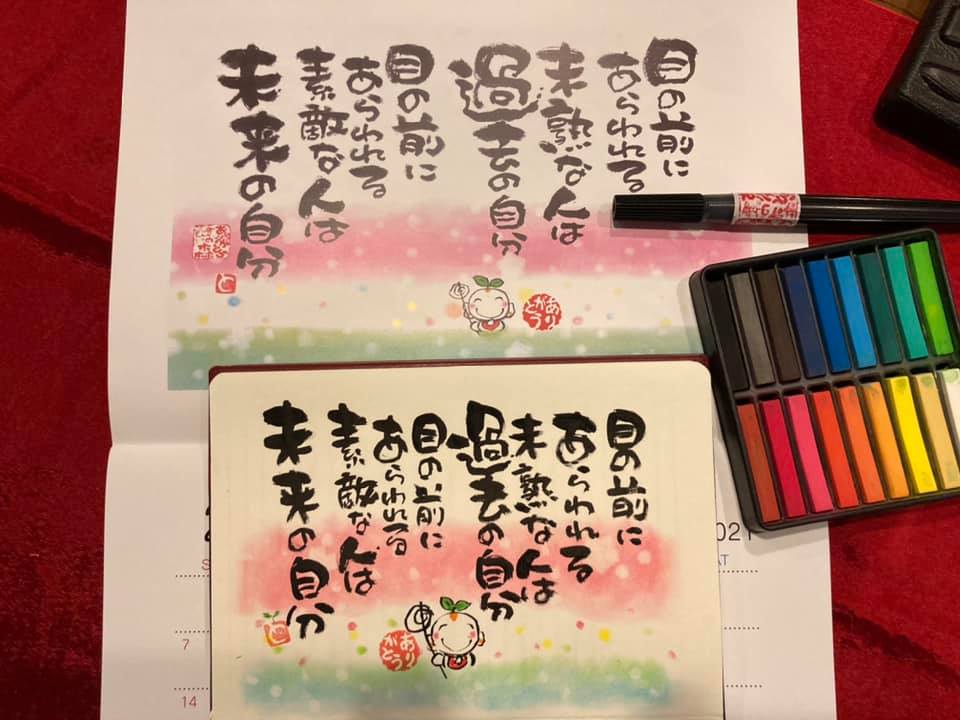 目の前に
あらわれる
未熟な人は
過去の自分
目の前に
あらわれる
素敵な人は
未来の自分
ありがとう
目の前に
あらわれる
未熟な人は
過去の自分
目の前に
あらわれる
素敵な人は
未来の自分
ありがとう
2021
7
14